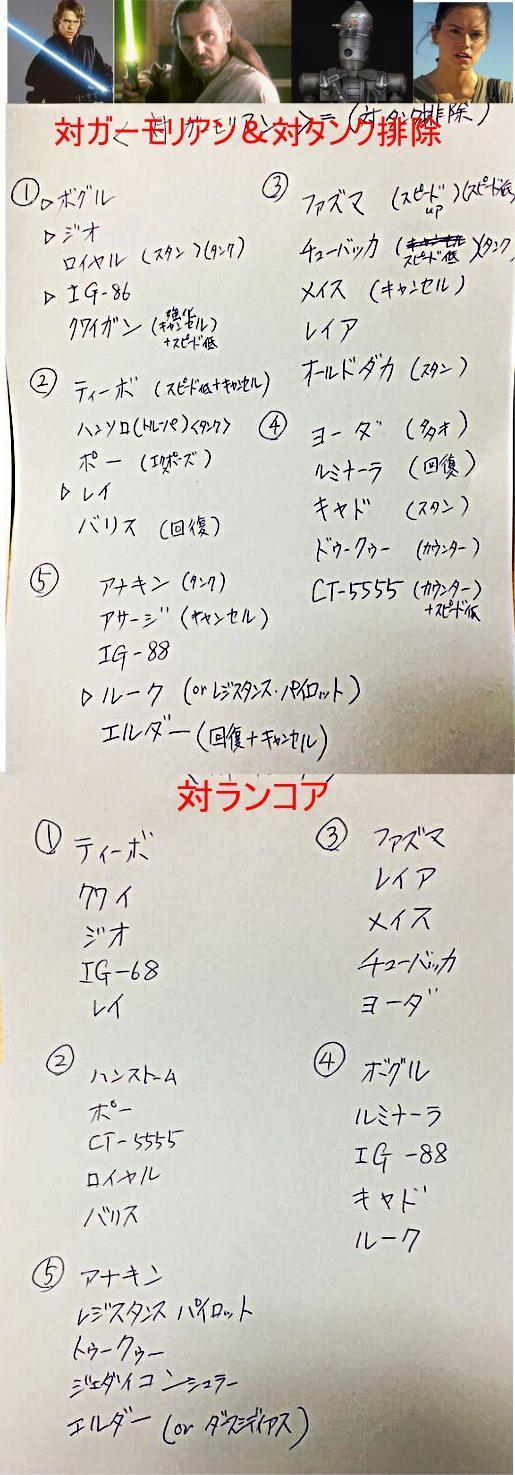 対ガーモリアン＆対タンク排除
① ▷ボグル
▷ジオ
ロイヤル (スタン)(タンク)
▷IG-86
クワイガン (強化キャンセル)
+スピード低
② ティーボ (スピード低+キャンセル)
ハンソロ(トルーパ)<タンク>
ポー (エクスポーズ)
▷レイ
バリス (回復)
③ ファズマ (スピードup)(スピード低)
チューバッカ (スピード低)(タンク)
メイス (キャンセル)
レイア
オールドダカ (スタン)
④ ヨーダ
ルミナーラ (回復)
キャド (スタン)
ドゥークゥー (カウンター)
CT-5555 (カウンター)
+スピード低
⑤ アナキン (タンク)
アサージ (キャンセル)
IG-88
▷ルーク (orレジスタンス・パイロット)
エルダー (回復+キャンセル)
対ランコア
① ティーボ
クワイ
ジオ
IG-68
レイ
② ハンストーム
ポー
CT-5555
ロイヤル
バリス
③ ファズマ
レイア
メイス
チューバッカ
ヨーダ
④ ボグル
ルミナーラ
IG-88
キャド
ルーク
⑤ アナキン
レジスタンス パイロット
トゥークゥー
ジェダイコンシュラー
エルダー (or ダースシディアス)